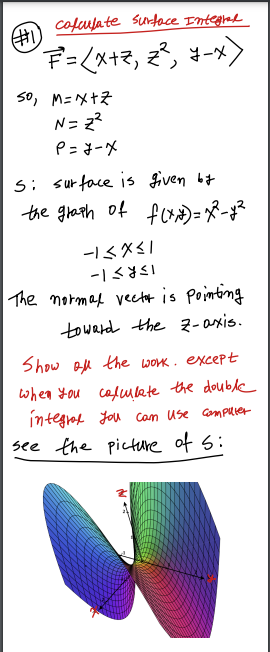 calculate Surface Integral
#1
F = <x+z, z², y-x>
so, M=x+z
N = z²
P = y-x
S: surface is given by
the graph of f(x,y)=x²-y²
-1≤x≤1
-1≤y≤1
The normal vector is pointing
toward the z-axis.
Show all the work. except
when you calculate the double
integral you can use computer
see the picture of S:
z
x